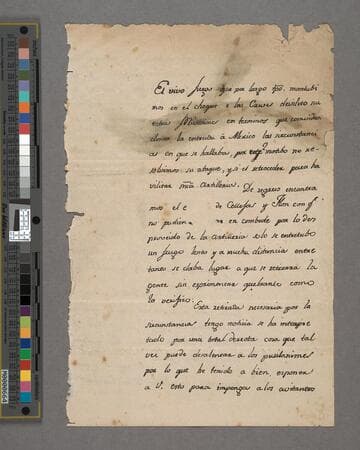 El vivo fuego que por largo tpô. mantubi
mos en el choque de las Cruces
en terminos que
la entrada á Mexico las circunstancias
en que se hallaba, por cuyo motibo no re
solvimos su ataque, y si el retroceder para ha
vilitar ntrâ Artilleria. De regreso encontra
mos el e de Callejas y Flon con qe.
no pudien en combate por lo des
proveido de la artilleria solo se entretubo
un fuego lento y a mucha distancia entre
tanto se daba lugar a que se retirara la
gente sin experimentar quebranto como
lo verificó.
Esta retirada necesaria por la
circunstancia tengo noticia se ha interpre
tado por una total derrota cosa que tal
vez puede desalentar a los pusilanimes
por lo que he tenido a bien, exponer
a V. esto para imponga a los